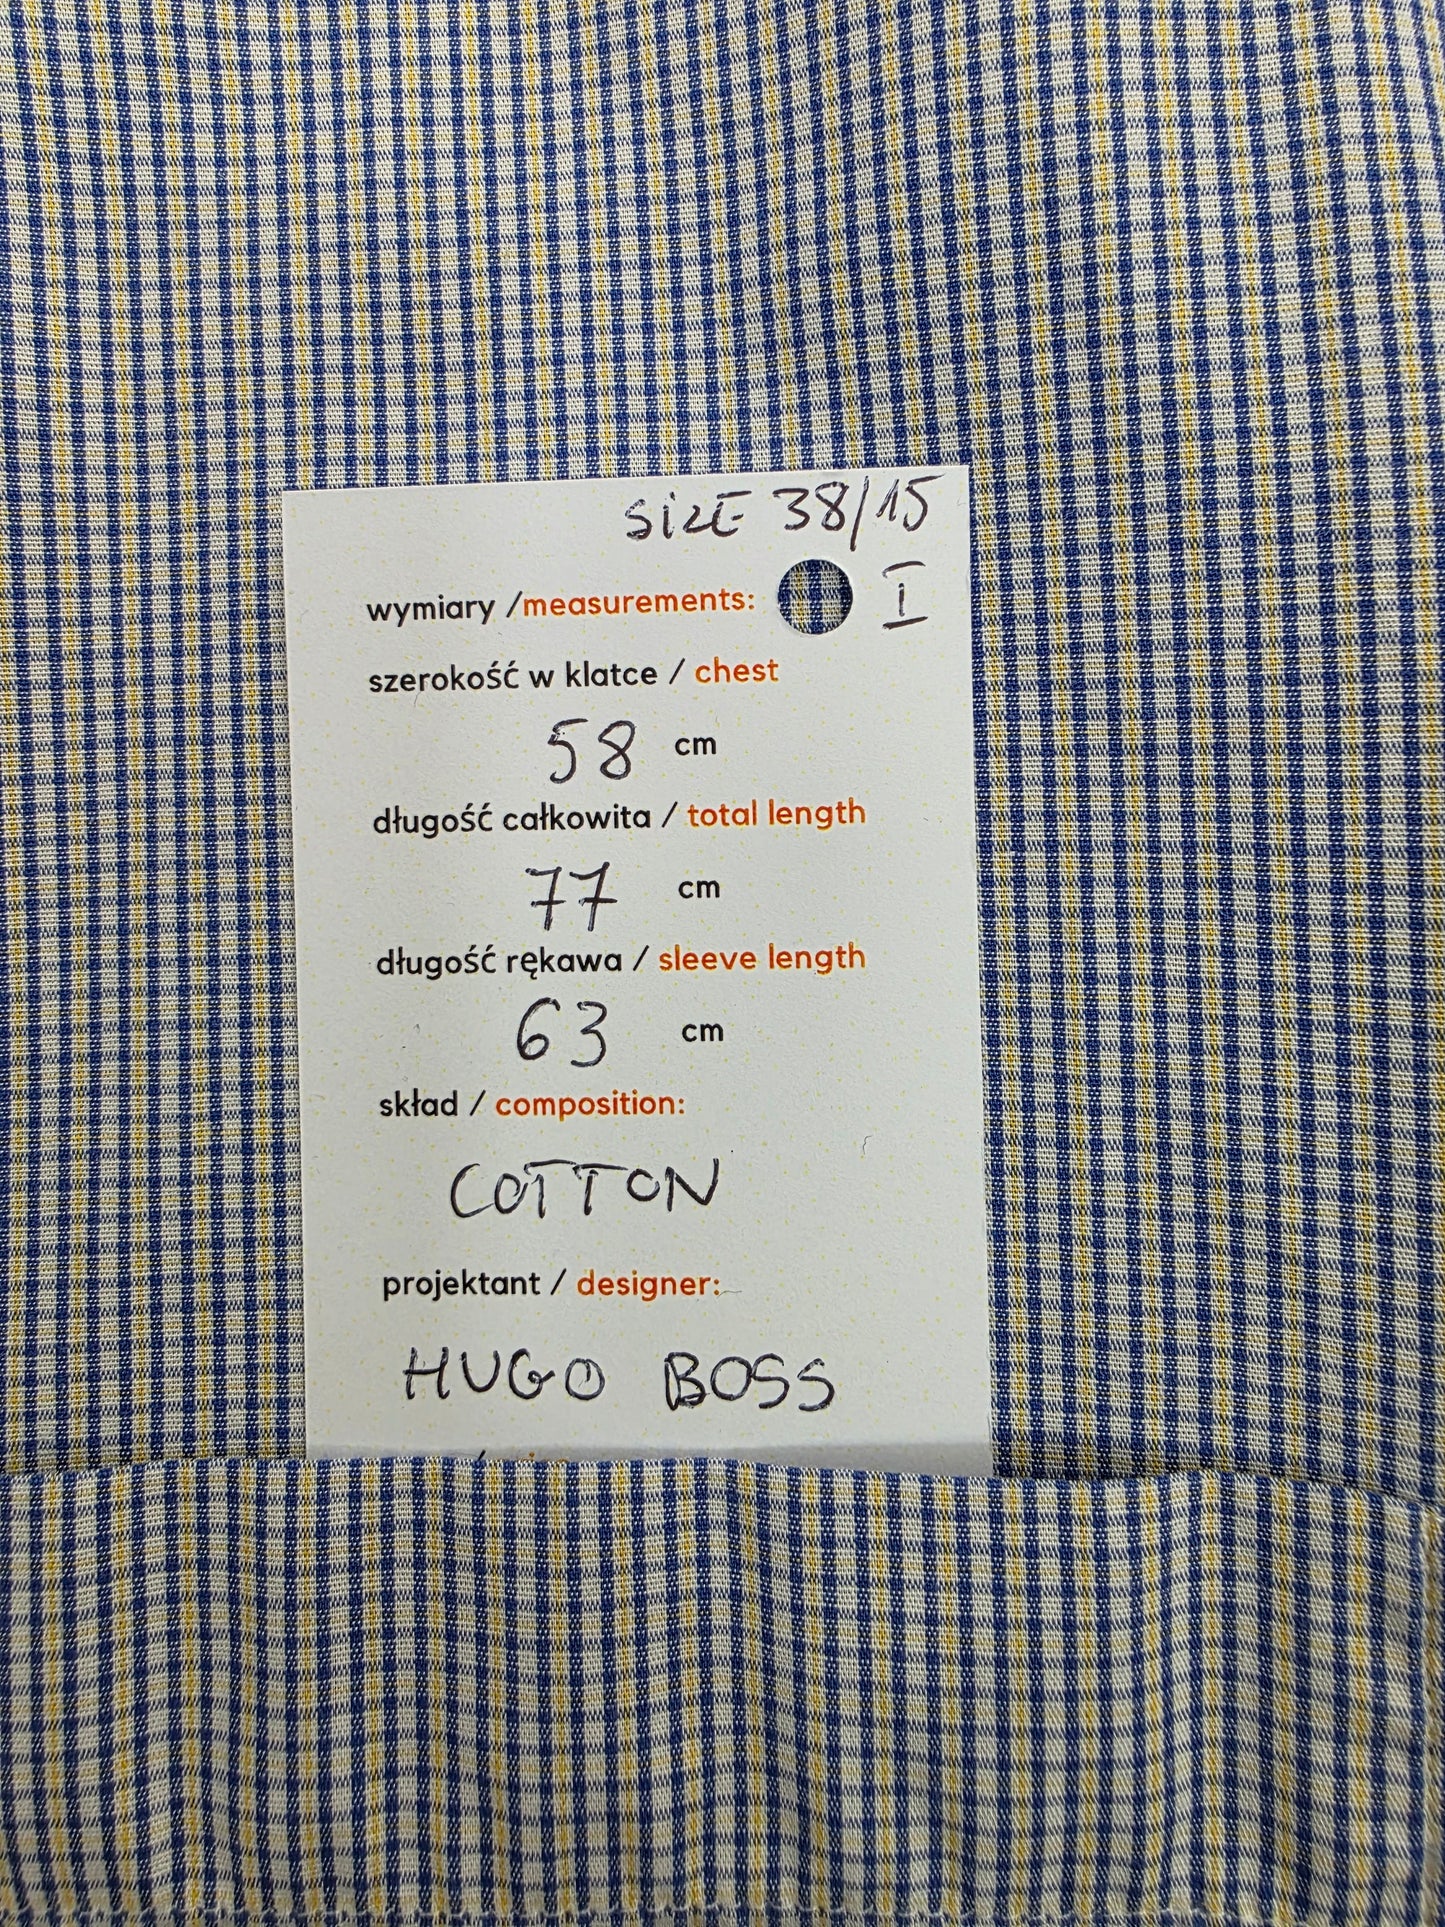 SIZE 38/15
wymiary /measurements: I
szerokość w klatce / chest
58 cm
długość całkowita / total length
77 cm
długość rękawa / sleeve length
63 cm
skład / composition:
COTTON
projektant / designer:
HUGO BOSS